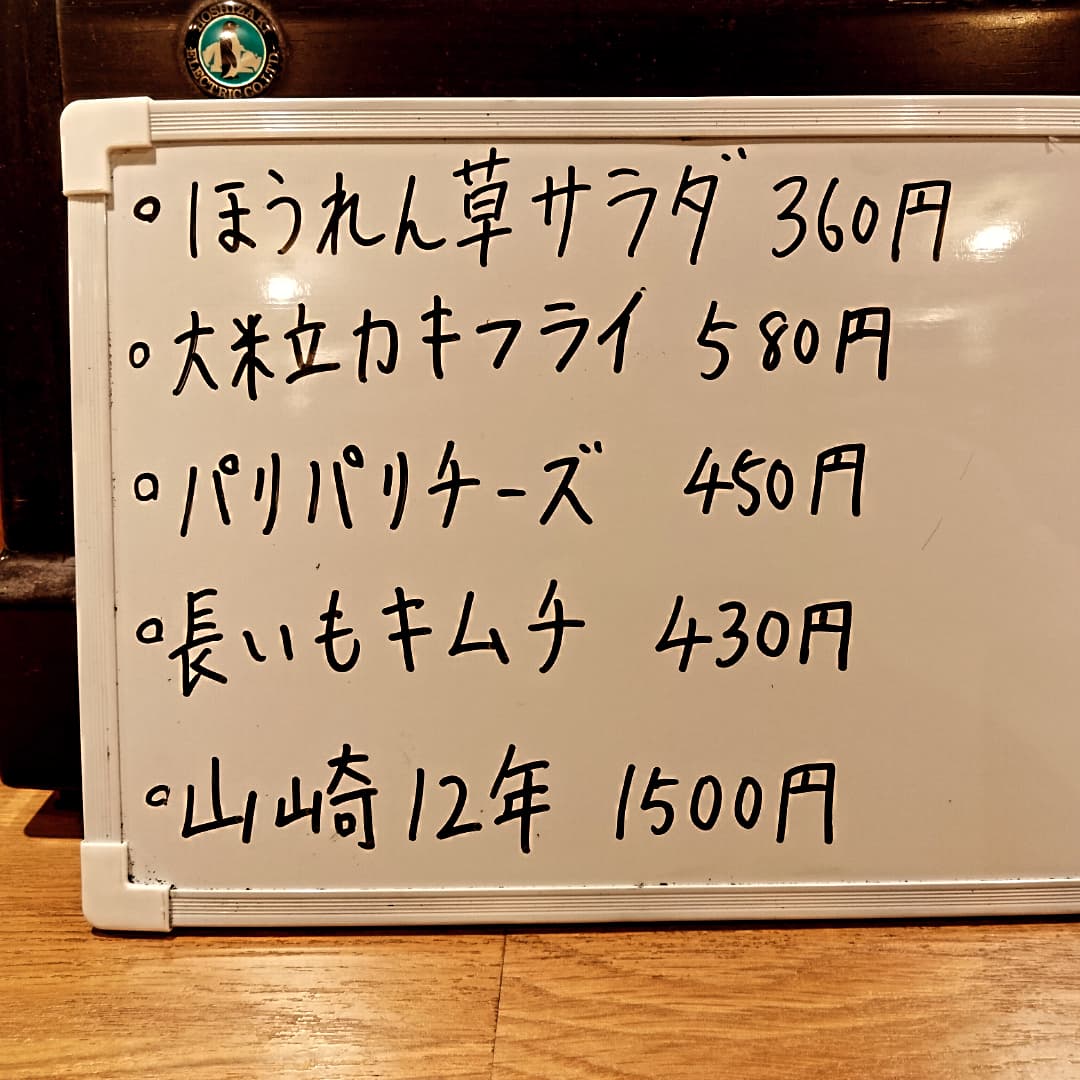 HOSHIZAKI
ELECTRIC CO.,LTD.
。ほうれん草サラダ 360円
。大粒カキフライ 580円
。パリパリチーズ 450円
。長いもキムチ 430円
。山崎12年 1500円